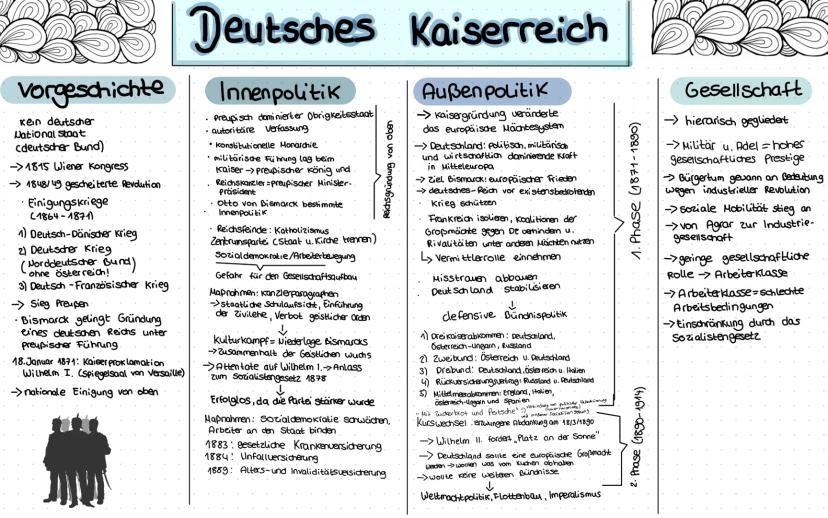 Deutsches Kaiserreich
Vorgeschichte
kein deutscher
Nationalstaat
(deutscher Bund)
→ 1815 Wiener Kongress
→ 1848/49 gescheiterte Revolution
· Einigungskriege
(1864-1871)
1) Deutsch-Dänischer Krieg
2) Deutscher Krieg
(Norddeutscher Bund)
ohne Österreich!
3) Deutsch-Französischer Krieg
→ Sieg Preußen
· Bismarck gelingt Gründung
eines deutschen Reichs unter
preußischer Führung
18. Januar 1871: Kaiserproklamation
Wilhelm I. (Spiegelsaal von Versaille)
→ nationale Einigung von oben
Innenpolitik
· preußisch dominierter Obrigkeitsstaat
· autoritäre Verfassung
· konstitutionelle Monarchie
· militärische Führung lag beim
Kaiser → preußischer König und
· Reichskanzler = preußischer Minister-
präsident
· Otto von Bismarck bestimmte
Innenpolitik
Reichsgründung von oben
· Reichsfeinde: Katholizismus
Zentrumspartei (Staat u. Kirche trennen)
Sozialdemokratie/Arbeiterbewegung
Gefahr für den Gesellschaftsaufbau
Maßnahmen: Kanzlerparagraphen
→ staatliche Schulaufsicht, Einführung
der Zivilehe, Verbot geistlicher Orden
↓
Kulturkampf = Niederlage Bismarcks
→ Zusammenhalt der Geistlichen wuchs
→ Attentate auf Wilhelm I. → Anlass
zum Sozialistengesetz 1878
↓
Erfolglos, da die Partei stärker wurde
Maßnahmen: Sozialdemokratie schwächen,
Arbeiter an den Staat binden
1883: gesetzliche Krankenversicherung
1884: Unfallversicherung
1889: Alters- und Invaliditätsversicherung
Außenpolitik
→ Kaisergründung veränderte
das europäische Mächtesystem
→ Deutschland: politisch, militärisch
und wirtschaftlich dominierende Kraft
in Mitteleuropa
→ Ziel Bismarck: europäischer Frieden
→ deutsches-Reich vor existenzbedrohenden
Krieg schützen
· Frankreich isolieren, Koalitionen der
Großmächte gegen DE verhindern u.
Rivalitäten unter anderen Mächten nutzen
↳ Vermittlerrolle einnehmen
· Misstrauen abbauen
· Deutschland stabilisieren
↓
defensive Bündnispolitik
1) Dreikaiserabkommen: Deutschland,
Österreich-Ungarn, Russland
2) Zweibund: Österreich u. Deutschland
3) Dreibund: Deutschland, Österreich u. Italien
4) Rückversicherungsvertrag: Russland u. Deutschland
5) Mittelmeerabkommen: England, Italien,
Österreich-Ungarn und Spanien
1. Phase (1871-1890)
"Mit Zuckerbrot und Peitsche"
Kurswechsel: erzwungene Abdankung am 18/3/1890
→ Wilhelm II. fordert „Platz an der Sonne"
→ Deutschland sollte eine europäische Großmacht
werden → wollen was vom Kuchen abhaben
→ wollte keine weiteren Bündnisse
↓
Weltmachtpolitik, Flottenbau, Imperalismus
2. Phase (1890-1914)
Gesellschaft
→ hierarisch gegliedert
→ Militär u. Adel = hohes
gesellschaftliches Prestige
→ Bürgertum gewann an Bedeutung
wegen industrieller Revolution
→ soziale Mobilität stieg an
→ von Agrar zur Industrie-
gesellschaft
→ geringe gesellschaftliche
Rolle → Arbeiterklasse
→ Arbeiterklasse = schlechte
Arbeitsbedingungen
→ Einschränkung durch das
Sozialistengesetz